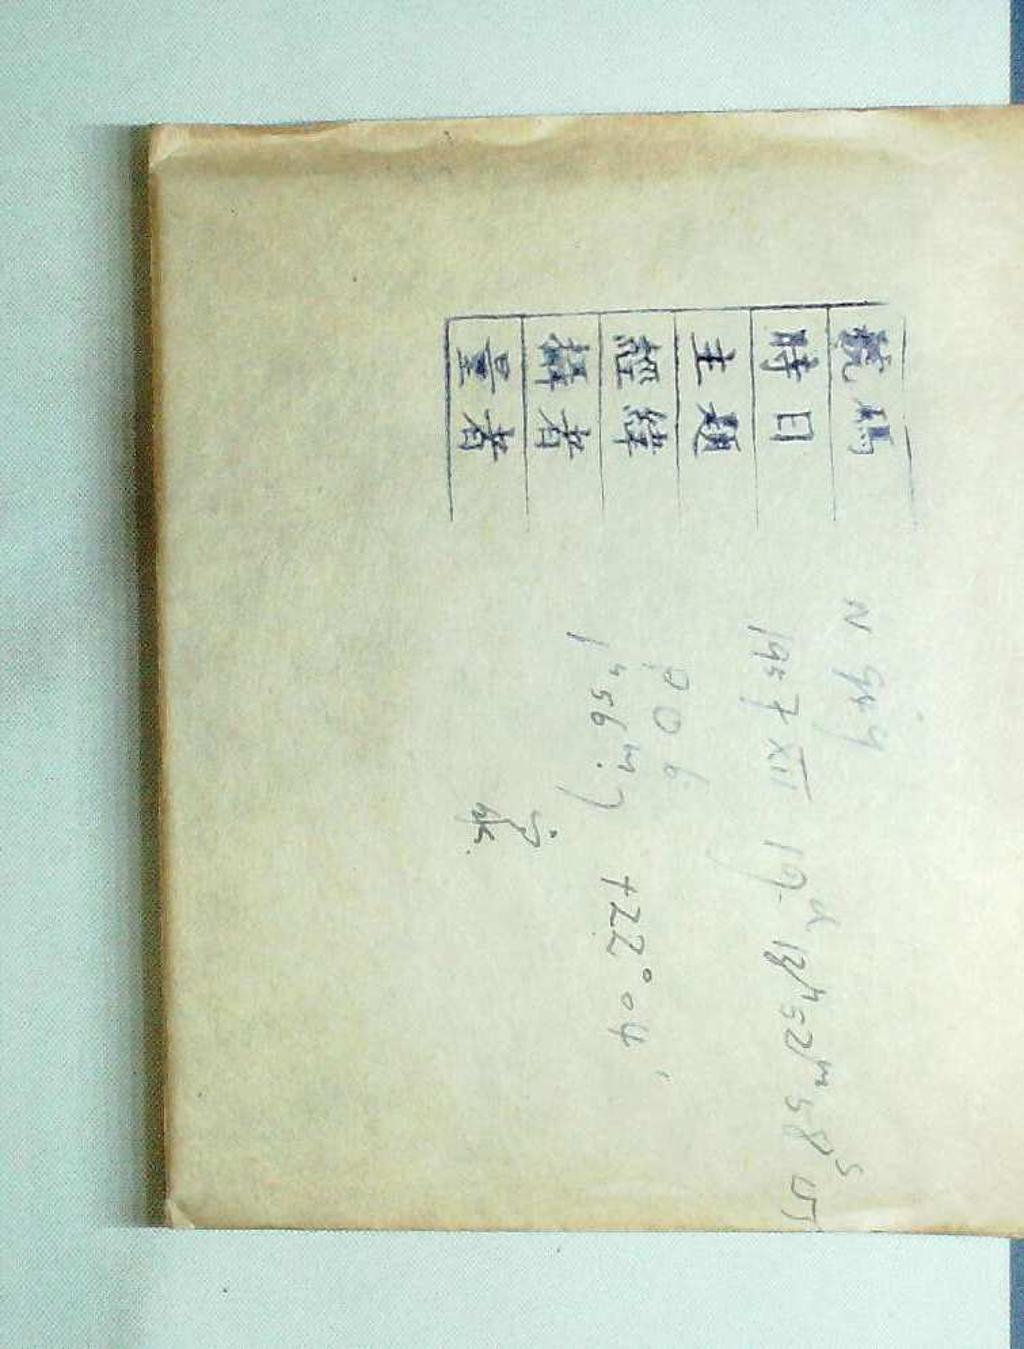 號碼 N 949
時日 1957 XII 19ᵈ 13ʰ52ᵐ58ˢ UT
主題 P06
經緯 1ʰ56ᵐ.7 +22°04'
攝者
量者